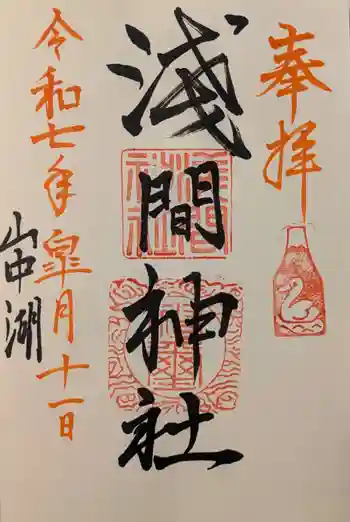 奉拝
淺間神社
山中湖
令和七年皐月十一日